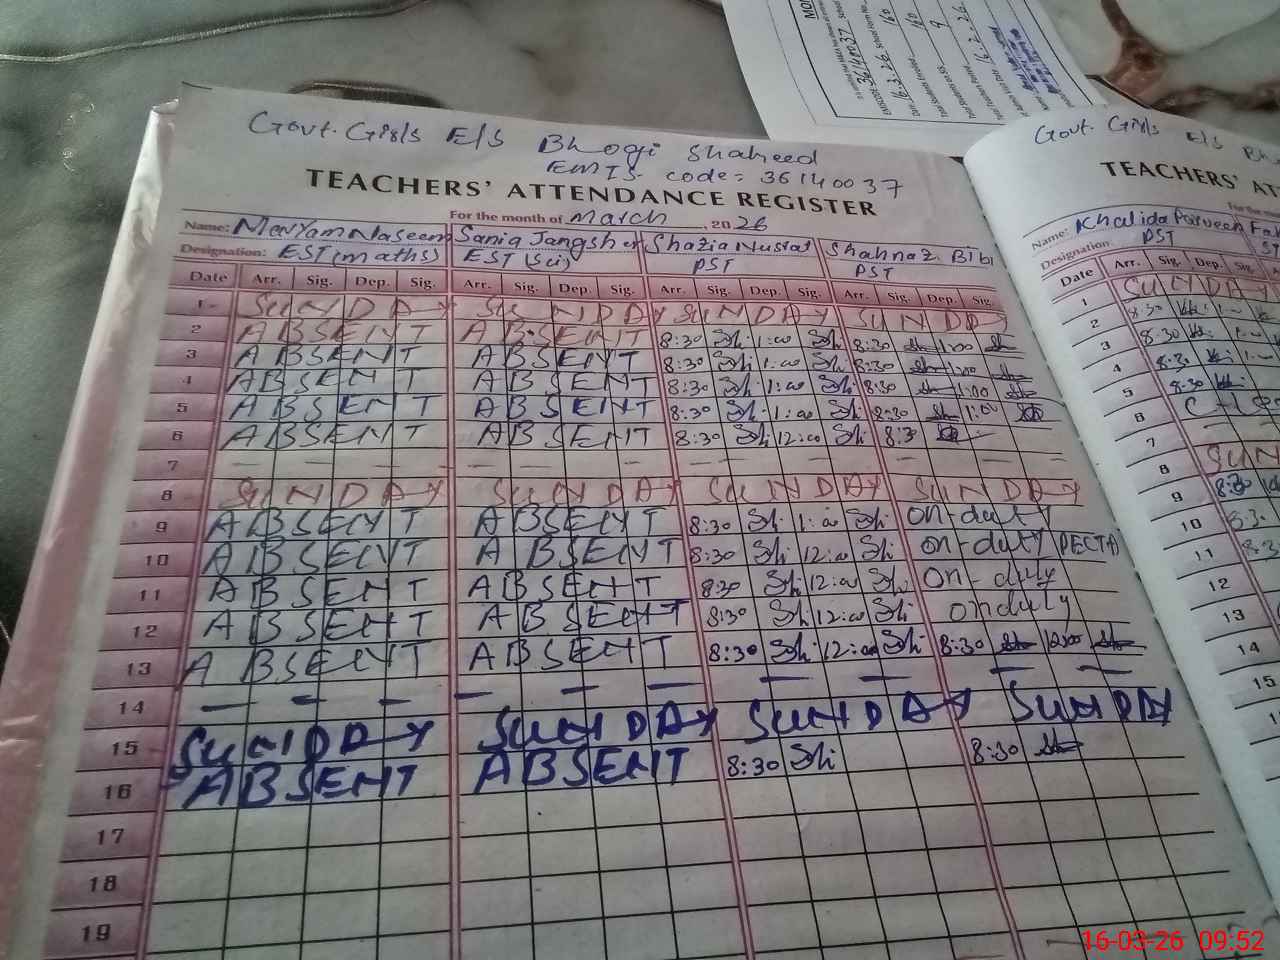 Govt. Girls E/S Bhogi Shaheed
EMIS code= 36140037
TEACHERS' ATTENDANCE REGISTER
For the month of March, 2026
Name: Maryam Naseem Sania Jangsher Shazia Nusrat Shahnaz Bibi
Designation: EST (maths) EST (sci) PST PST
Date Arr. Sig. Dep. Sig. Arr. Sig. Dep. Sig. Arr. Sig. Dep. Sig. Arr. Sig. Dep. Sig.
1 SUNDAY SUNDAY SUNDAY SUNDAY
2 ABSENT ABSENT 8:30 Sh 1:00 Sh 8:30 1:00
3 ABSENT ABSENT 8:30 Sh 1:00 Sh 8:30 1:00
4 ABSENT ABSENT 8:30 Sh 1:00 Sh 8:30 1:00
5 ABSENT ABSENT 8:30 Sh 1:00 Sh 8:30 1:00
6 ABSENT ABSENT 8:30 Sh 12:00 Sh 8:30
7 — — — — — — — — — — — —
8 SUNDAY SUNDAY SUNDAY SUNDAY
9 ABSENT ABSENT 8:30 Sh 1:00 Sh on-duty
10 ABSENT ABSENT 8:30 Sh 12:00 Sh on-duty (PECTA)
11 ABSENT ABSENT 8:30 Sh 12:00 Sh on-duty
12 ABSENT ABSENT 8:30 Sh 12:00 Sh onduty
13 ABSENT ABSENT 8:30 Sh 12:00 Sh 8:30 12:00
14 — — — — — — — — — —
15 SUNDAY SUNDAY SUNDAY SUNDAY
16 ABSENT ABSENT 8:30 Sh 8:30
17
18
19
Govt. Girls E/S
TEACHERS'
Name: Khalida Parveen
Designation: PST
Date Arr. Sig. Dep. Sig.
1 SUNDAY
2 8:30
3 8:30
4 8:30
5 8:30
6
7
8 SUN
9 8:30
10 8:30
11
12
13
14
15
16
36140037
16.3.26
160
160
9
16.2.26
16-03-26 09:52